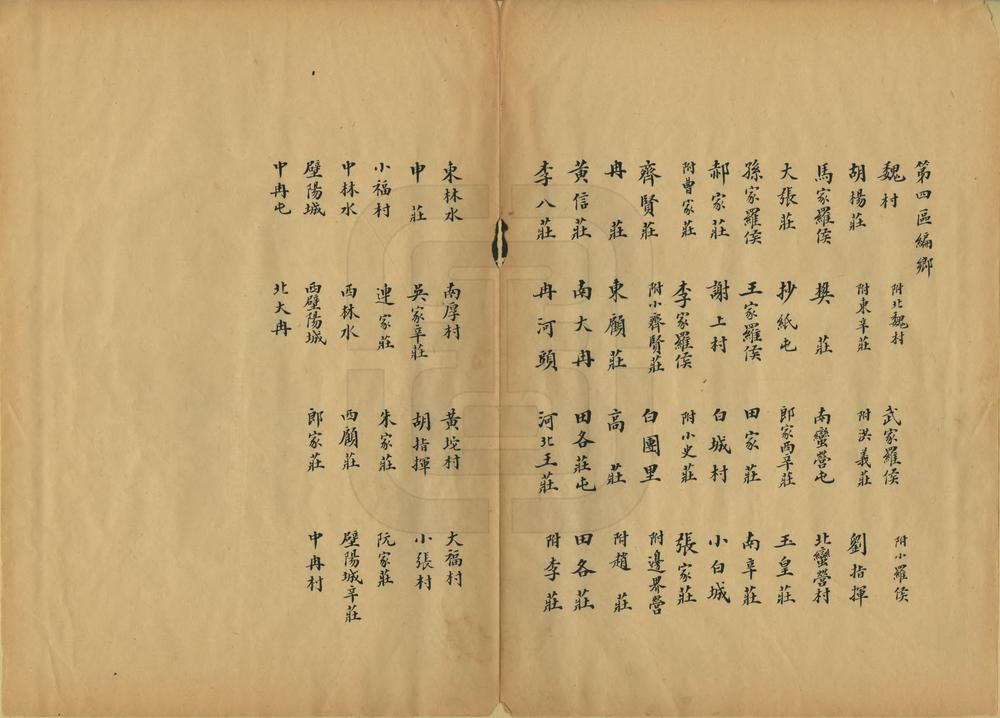 第四區編鄉
魏村 附北魏村 武家羅侯 附小羅侯
胡楊莊 附東辛莊 附洪義莊 劉指揮
馬家羅侯 樊莊 南蠻營屯 北蠻營村
大張莊 抄紙屯 郎家西辛莊 玉皇莊
孫家羅侯 王家羅侯 田家莊 南辛莊
郝家莊 謝上村 白城村 小白城
附曹家莊 李家羅侯 附小史莊 張家莊
齊賢莊 附小齊賢莊 白團里 附邊界營
冉莊 東顧莊 高莊 附趙莊
黃信莊 南大冉 田各莊屯 田各莊
李八莊 冉河頭 河北王莊 附李莊
東林水 南厚村 黃坨村 大福村
申莊 吳家辛莊 胡指揮 小張村
小福村 連家莊 朱家莊 阮家莊
中林水 西林水 西顧莊 壁陽城辛莊
壁陽城 西壁陽城 郎家莊 中冉村
中冉屯 北大冉